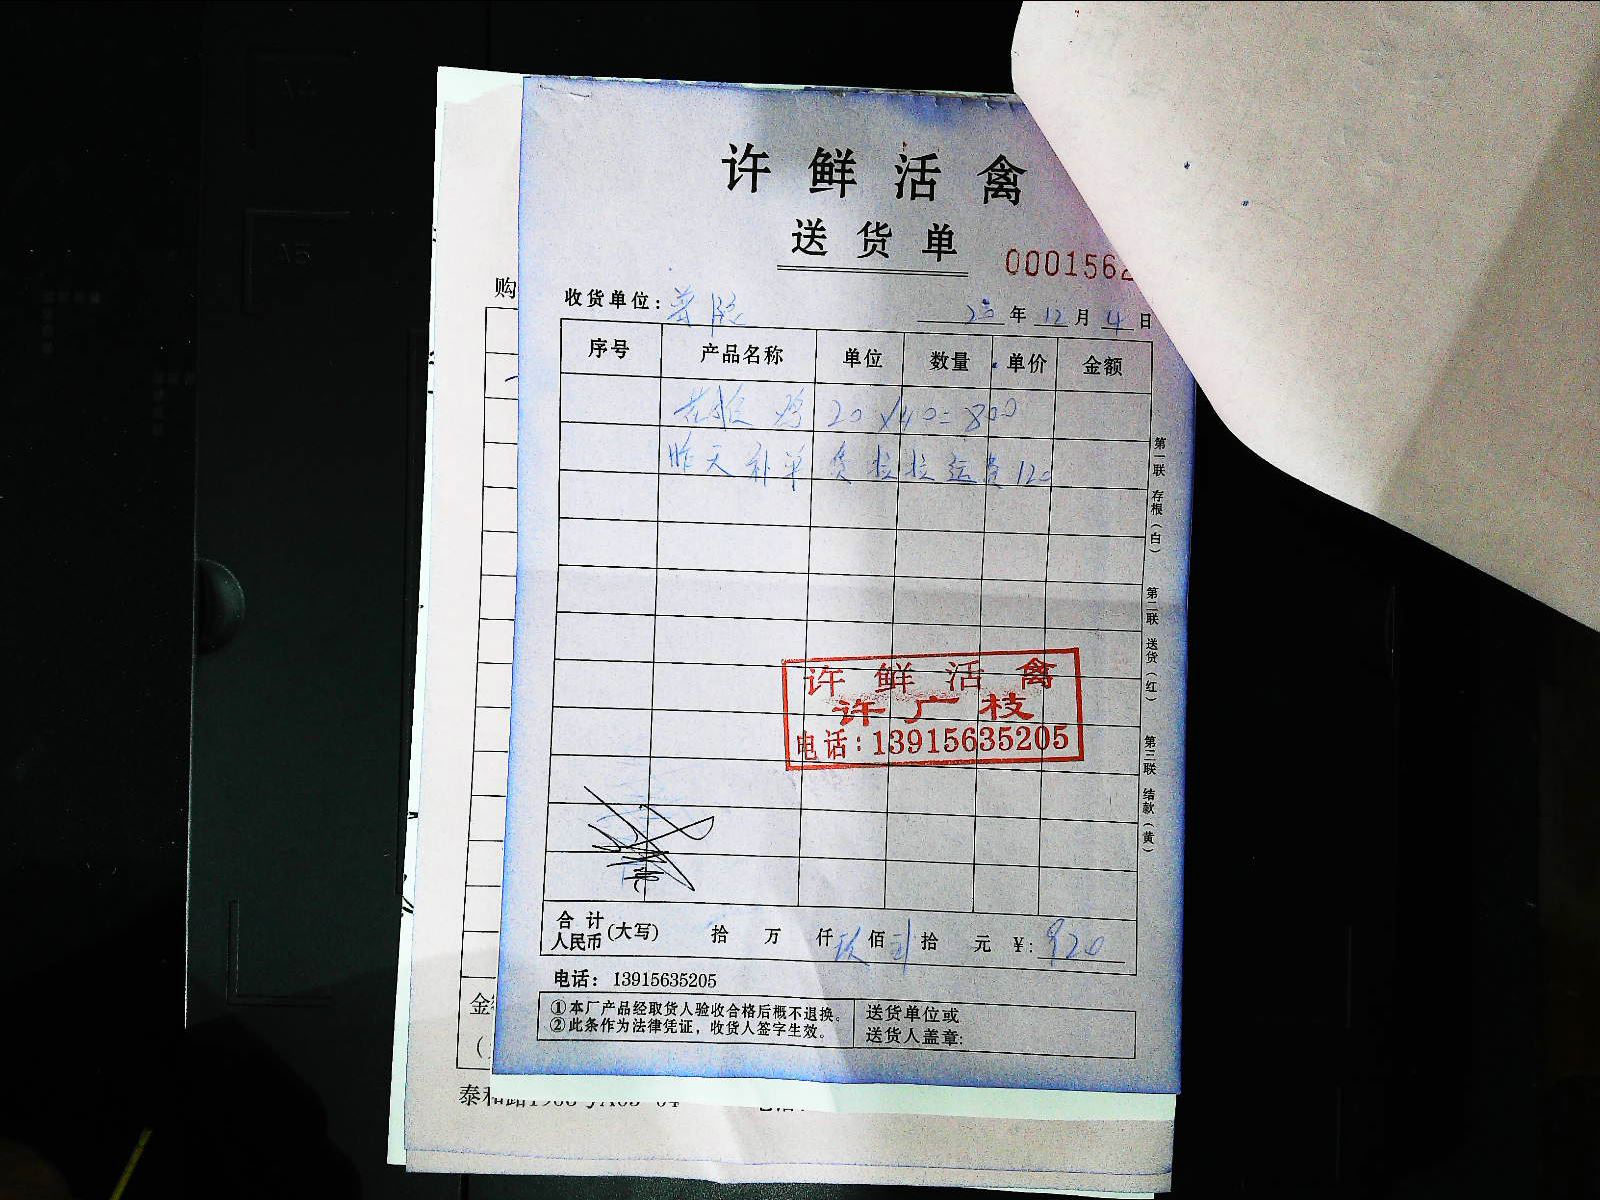 许鲜活禽
送货单
000156
购
收货单位:
年 12 月 4 日
序号 产品名称 单位 数量 单价 金额
鸡 20×40=800
昨天补单货拉拉运费120
第一联 存根(白)
第二联 送货(红)
第三联 结款(黄)
许鲜活禽
许广枝
电话:13915635205
合计人民币(大写) 拾 万 仟 玖 佰 贰 拾 元 ¥: 920
电话: 13915635205
①本厂产品经取货人验收合格后概不退换。
②此条作为法律凭证,收货人签字生效。
送货单位或
送货人盖章:
金
泰和路